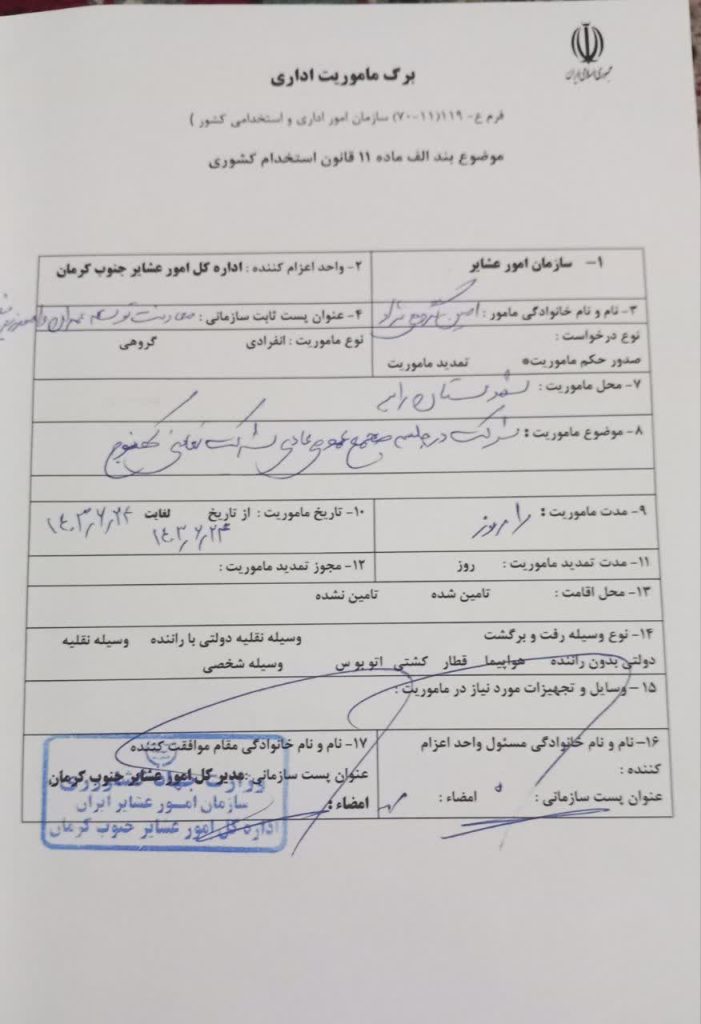 جمهوری اسلامی ایران
برگ ماموریت اداری
فرم ع- ۱۱۹(۱۱-۷۰) سازمان امور اداری و استخدامی کشور )
موضوع بند الف ماده ۱۱ قانون استخدام کشوری
۱- سازمان امور عشایر
۲- واحد اعزام کننده : اداره کل امور عشایر جنوب کرمان
۳- نام و نام خانوادگی مامور : امین
۴- عنوان پست ثابت سازمانی : معاونت توسعه عمران و
نوع درخواست :
صدور حکم ماموریت* تمدید ماموریت
نوع ماموریت : انفرادی گروهی
۷- محل ماموریت :
۸- موضوع ماموریت : شرکت در جلسه مجمع عمومی عادی شرکت تعاونی کهنوج
۹- مدت ماموریت : روز
۱۰- تاریخ ماموریت : از تاریخ ۱۴۰۳٫۶٫۲۴ لغایت ۱۴۰۳٫۶٫۲۴
۱۱- مدت تمدید ماموریت : روز
۱۲- مجوز تمدید ماموریت :
۱۳- محل اقامت : تامین شده تامین نشده
۱۴- نوع وسیله رفت و برگشت وسیله نقلیه دولتی با راننده وسیله نقلیه
دولتی بدون راننده هواپیما قطار کشتی اتوبوس وسیله شخصی
۱۵- وسایل و تجهیزات مورد نیاز در ماموریت :
۱۶- نام و نام خانوادگی مسئول واحد اعزام
کننده :
عنوان پست سازمانی : امضاء :
۱۷- نام و نام خانوادگی مقام موافقت کننده
عنوان پست سازمانی : مدیر کل امور عشایر جنوب کرمان
امضاء :
وزارت جهاد کشاورزی
سازمان امور عشایر ایران
اداره کل امور عشایر جنوب کرمان